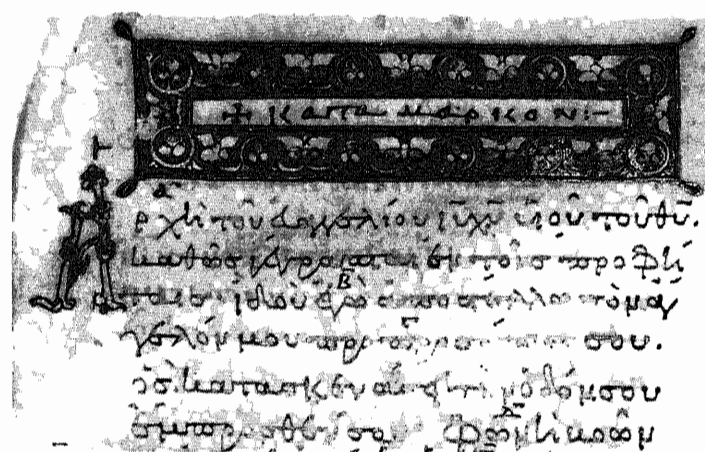 + κατα μαρκον:-
Ἀρχὴ τοῦ εὐαγγελίου ιυ χυ υἱοῦ τοῦ θυ.
καθὼς γέγραπται ἐν τοῖς προφή
ταις ἰδοὺ ἐγὼ ἀποστέλλω τὸν ἄγ
γελόν μου πρὸ προσώπου σου.
ὃς κατασκευάσει τὴν ὁδόν σου
ἔμπροσθέν σου Φωνὴ βοῶν